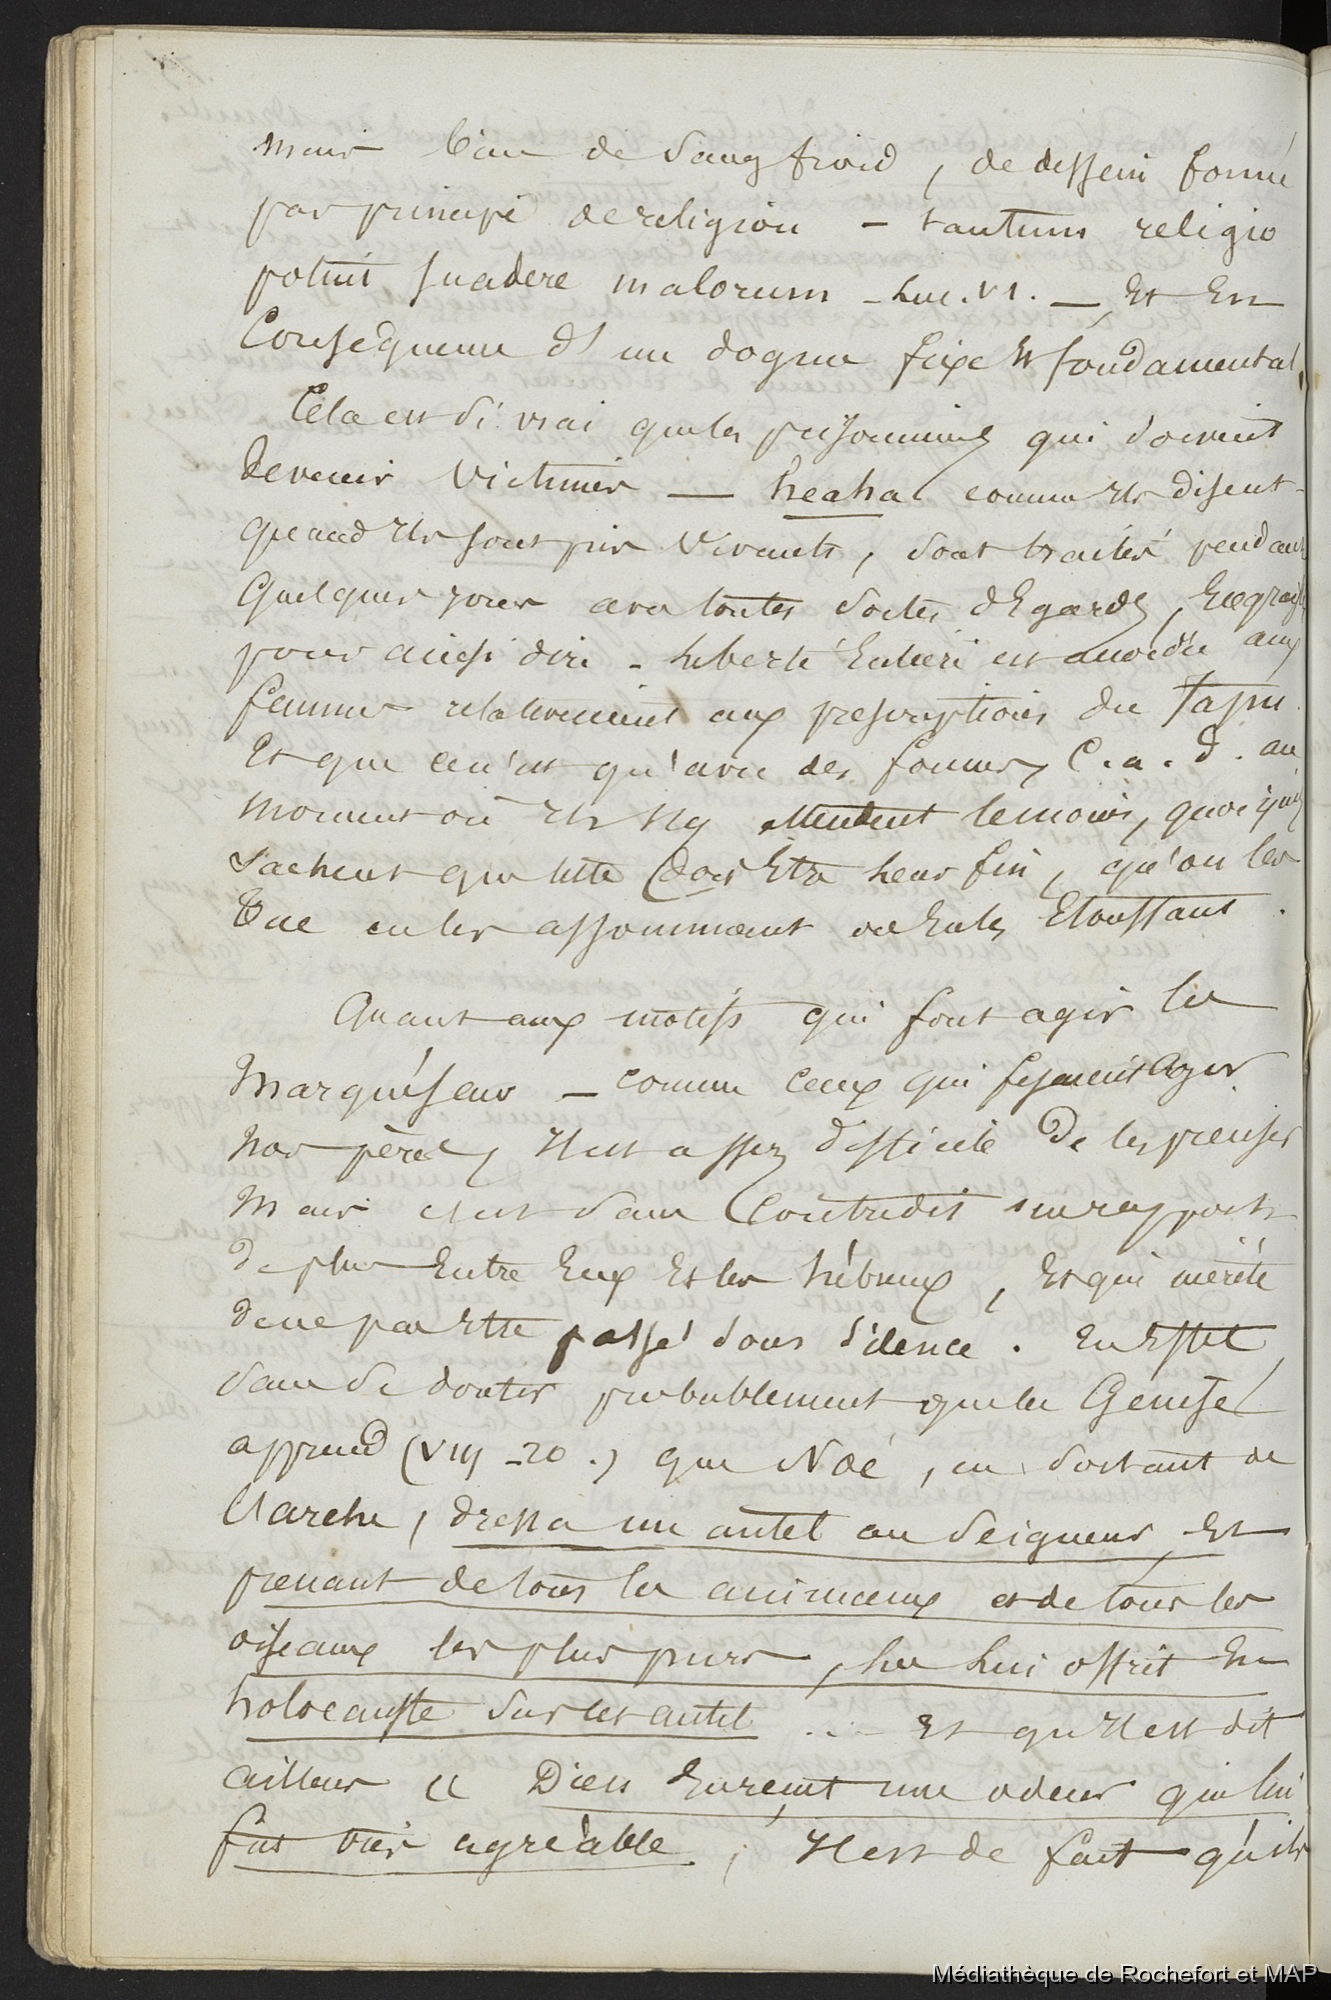 mais bien de sang froid, de dessein formé
par principe de religion – tantum religio
potuit suadere malorum – Luc. VI. — Et en
Conséquence d'un dogme fixe et fondamental.
Cela est si vrai que les prisonniers qui doivent
devenir victimes — heaha comme ils disent –
quand ils sont pris vivants, sont traités pendant
quelques jours avec toutes sortes d'Egards, Engraissés
pour ainsi dire – liberté Entière est accordée aux
femmes relativement aux prescriptions du Tapu.
Et que ce n'est qu'avec des formes, C.a.d. au
moment où ils s'y attendent le moins, quoiqu'ils
sachent que telle doit Etre leur fin, qu'on les
tue en les assommant ou En les Etouffant.
Quant aux motifs qui font agir les
Marquiseins – comme ceux qui fesaient agir
nos pères, Il est assez difficile de les préciser
Mais c'est sans Contredit un rapport
de plus Entre Eux Et les hébreux, Et qui mérite
de ne pas Etre passé sous silence. En Effet
sans s'en douter probablement que la Genèse
apprend (VIII – 20.) que Noé, en sortant de
l'arche, dressa un autel au Seigneur, Et
prenant de tous les animaux et de tous les
oiseaux les plus purs, les lui offrit En
holocauste sur cet autel ... Et qu'Il est dit
ailleurs « Dieu En reçut une odeur qui lui
fut très agréable., Il est de fait qu'ils
Médiathèque de Rochefort et MAP